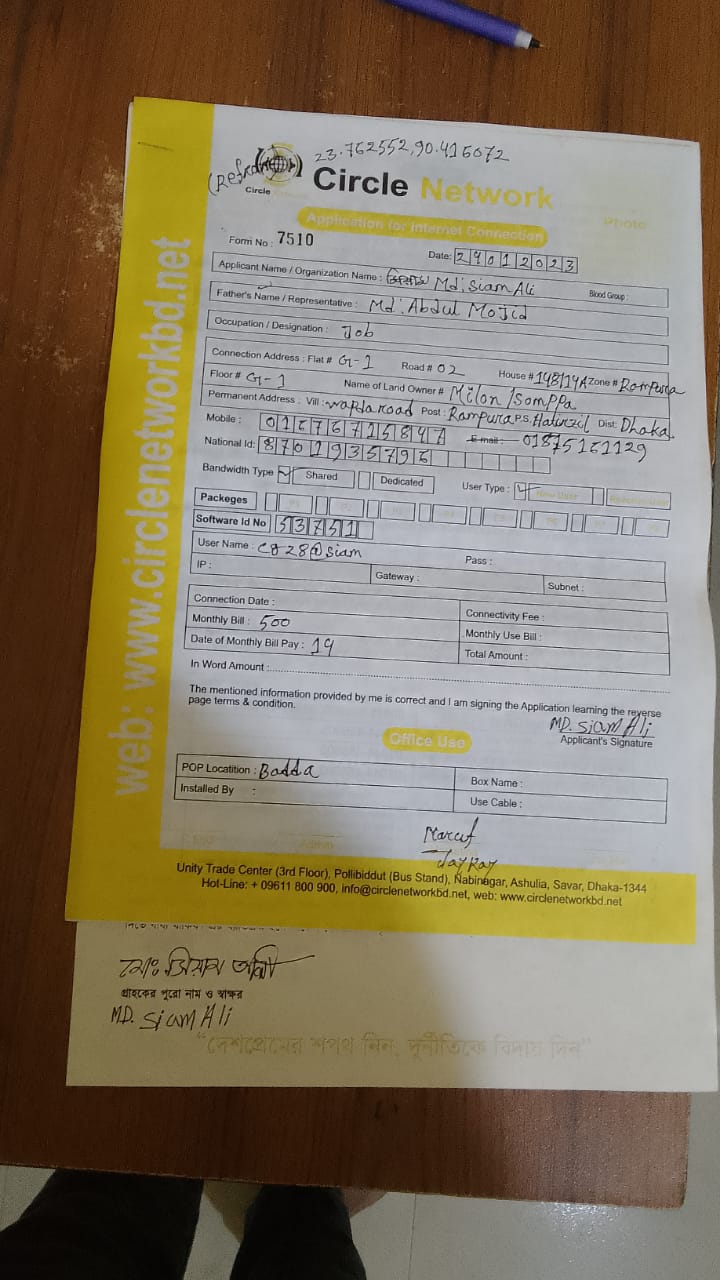 23.762552,90.415072
Circle
Circle Network
Application for Internet Connection
Photo
Form No : 7510
Date: 24012023
Applicant Name / Organization Name : Md: Siam Ali Blood Group :
Father's Name / Representative : Md: Abdul Mojid
Occupation / Designation : Job
Connection Address : Flat # G-1 Road # 02 House # 148/14A Zone # Rampura
Floor # G-1 Name of Land Owner # Milon /Somppa
Permanent Address : Vill : wapda road Post : Rampura P.S. Dist: Dhaka.
Mobile : E-mail : 01875161129
National Id: 8701935796
Bandwidth Type Shared Dedicated User Type : New User
Packeges P1 P2 P3 P4 P5 P6 P7 P8
Software Id No 53751
User Name : c828@siam Pass :
IP : Gateway : Subnet :
Connection Date : Connectivity Fee :
Monthly Bill : 500 Monthly Use Bill :
Date of Monthly Bill Pay : 19 Total Amount :
In Word Amount :
The mentioned information provided by me is correct and I am signing the Application learning the reverse
page terms & condition.
MD. Siam Ali
Applicant's Signature
Office Use
POP Locatition : Badda Box Name :
Installed By : Use Cable :
Maruf
Unity Trade Center (3rd Floor), Pollibiddut (Bus Stand), Nabinagar, Ashulia, Savar, Dhaka-1344
Hot-Line: + 09611 800 900, info@circlenetworkbd.net, web: www.circlenetworkbd.net
web: www.circlenetworkbd.net
মোঃ সিয়াম আলী
গ্রাহকের পুরো নাম ও স্বাক্ষর
MD. Siam Ali
“দেশপ্রেমের শপথ নিন, দুর্নীতিকে বিদায় দিন”